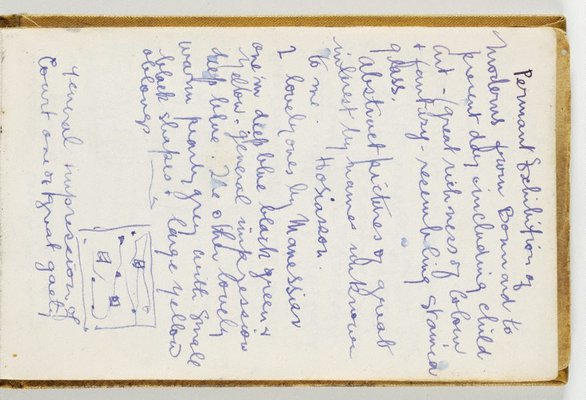 Permant Exhibition of
Moderns from Bonnard to
present day including child
art - (great richness of colour
+ fantasy - resembling stained
glass.
Abstract pictures of great
interest by names unknown
to me. Hosiasson.
2 lovely ones by Manessier
one in deep blue black green &
yellow - general impression
deep blue. The other lovely
warm pearly grey with small
black shapes & large yellow
oblongs
general impression of
Court one of great gaiety